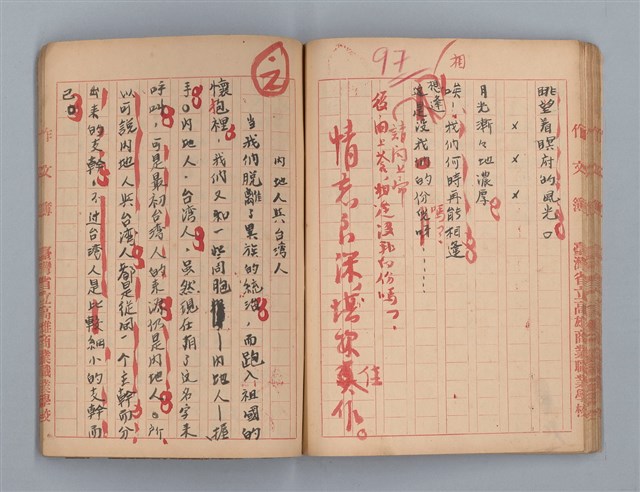 作文簿 臺灣省立高雄商業職業學校
眺望着暝府的風光。
×  ×  ×
月光漸々地濃厚
唉!我們何時再能相逢
相逢
嗎?
沒我們的份兒呀……
相
97
請問上帝
後,向上答,相逢沒我的份嗎?
情意良深,堪稱佳作。
內地人與台湾人
當我們脫離了異族的統治,而跑入祖國的
懷抱裡,我們又和一些同胞——內地人——握
手。內地人,台湾人,虽然現在有了这名字來
呼叫,可是最初台湾人的來源仍是內地人。所
以可說內地人與台湾人都是從同一个主幹而分
出來的支幹,不过台湾人是比較細小的支幹而
已。
作文簿 臺灣省立高雄商業職業學校